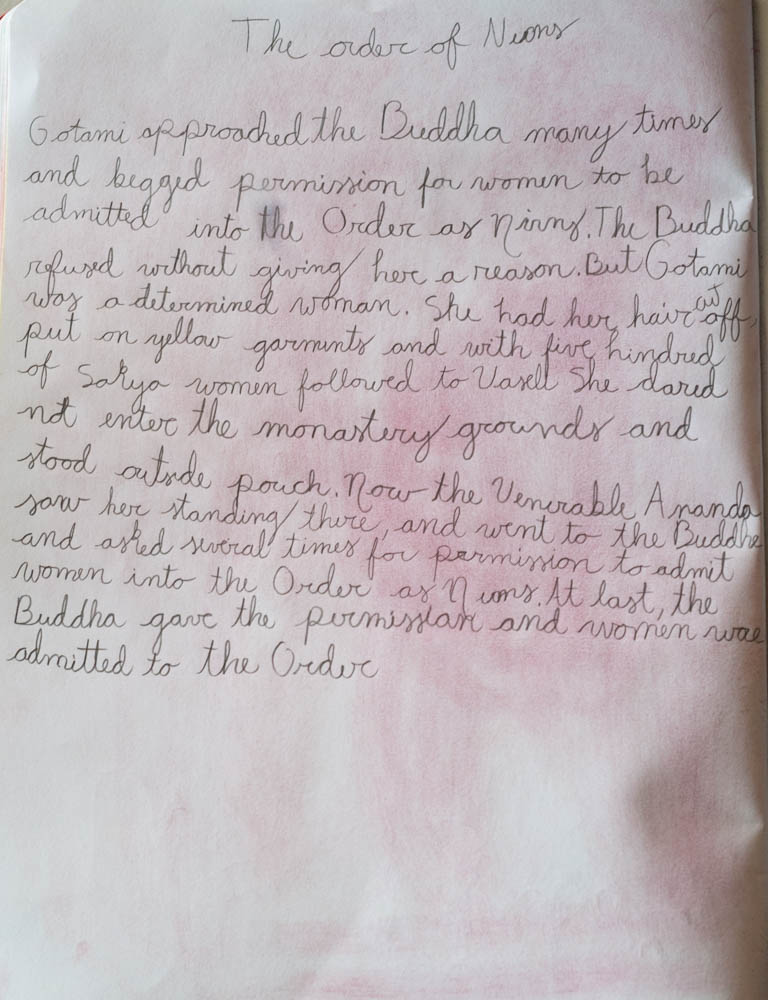 The order of Nuons
Gotami approached the Buddha many times
and begged permission for women to be
admitted into the Order as Ninns. The Buddha
refused without giving her a reason. But Gotami
was a determined woman. She had her hair cut off,
put on yellow garments and with five hindred
of Sakya women followed to Vasell She dared
not enter the monastery grounds and
stood outside pouch. Now the Venerable Ananda
saw her standing there, and went to the Buddha
and asked several times for permission to admit
women into the Order as Nuons. At last, the
Buddha gave the permission and women wae
admitted to the Order